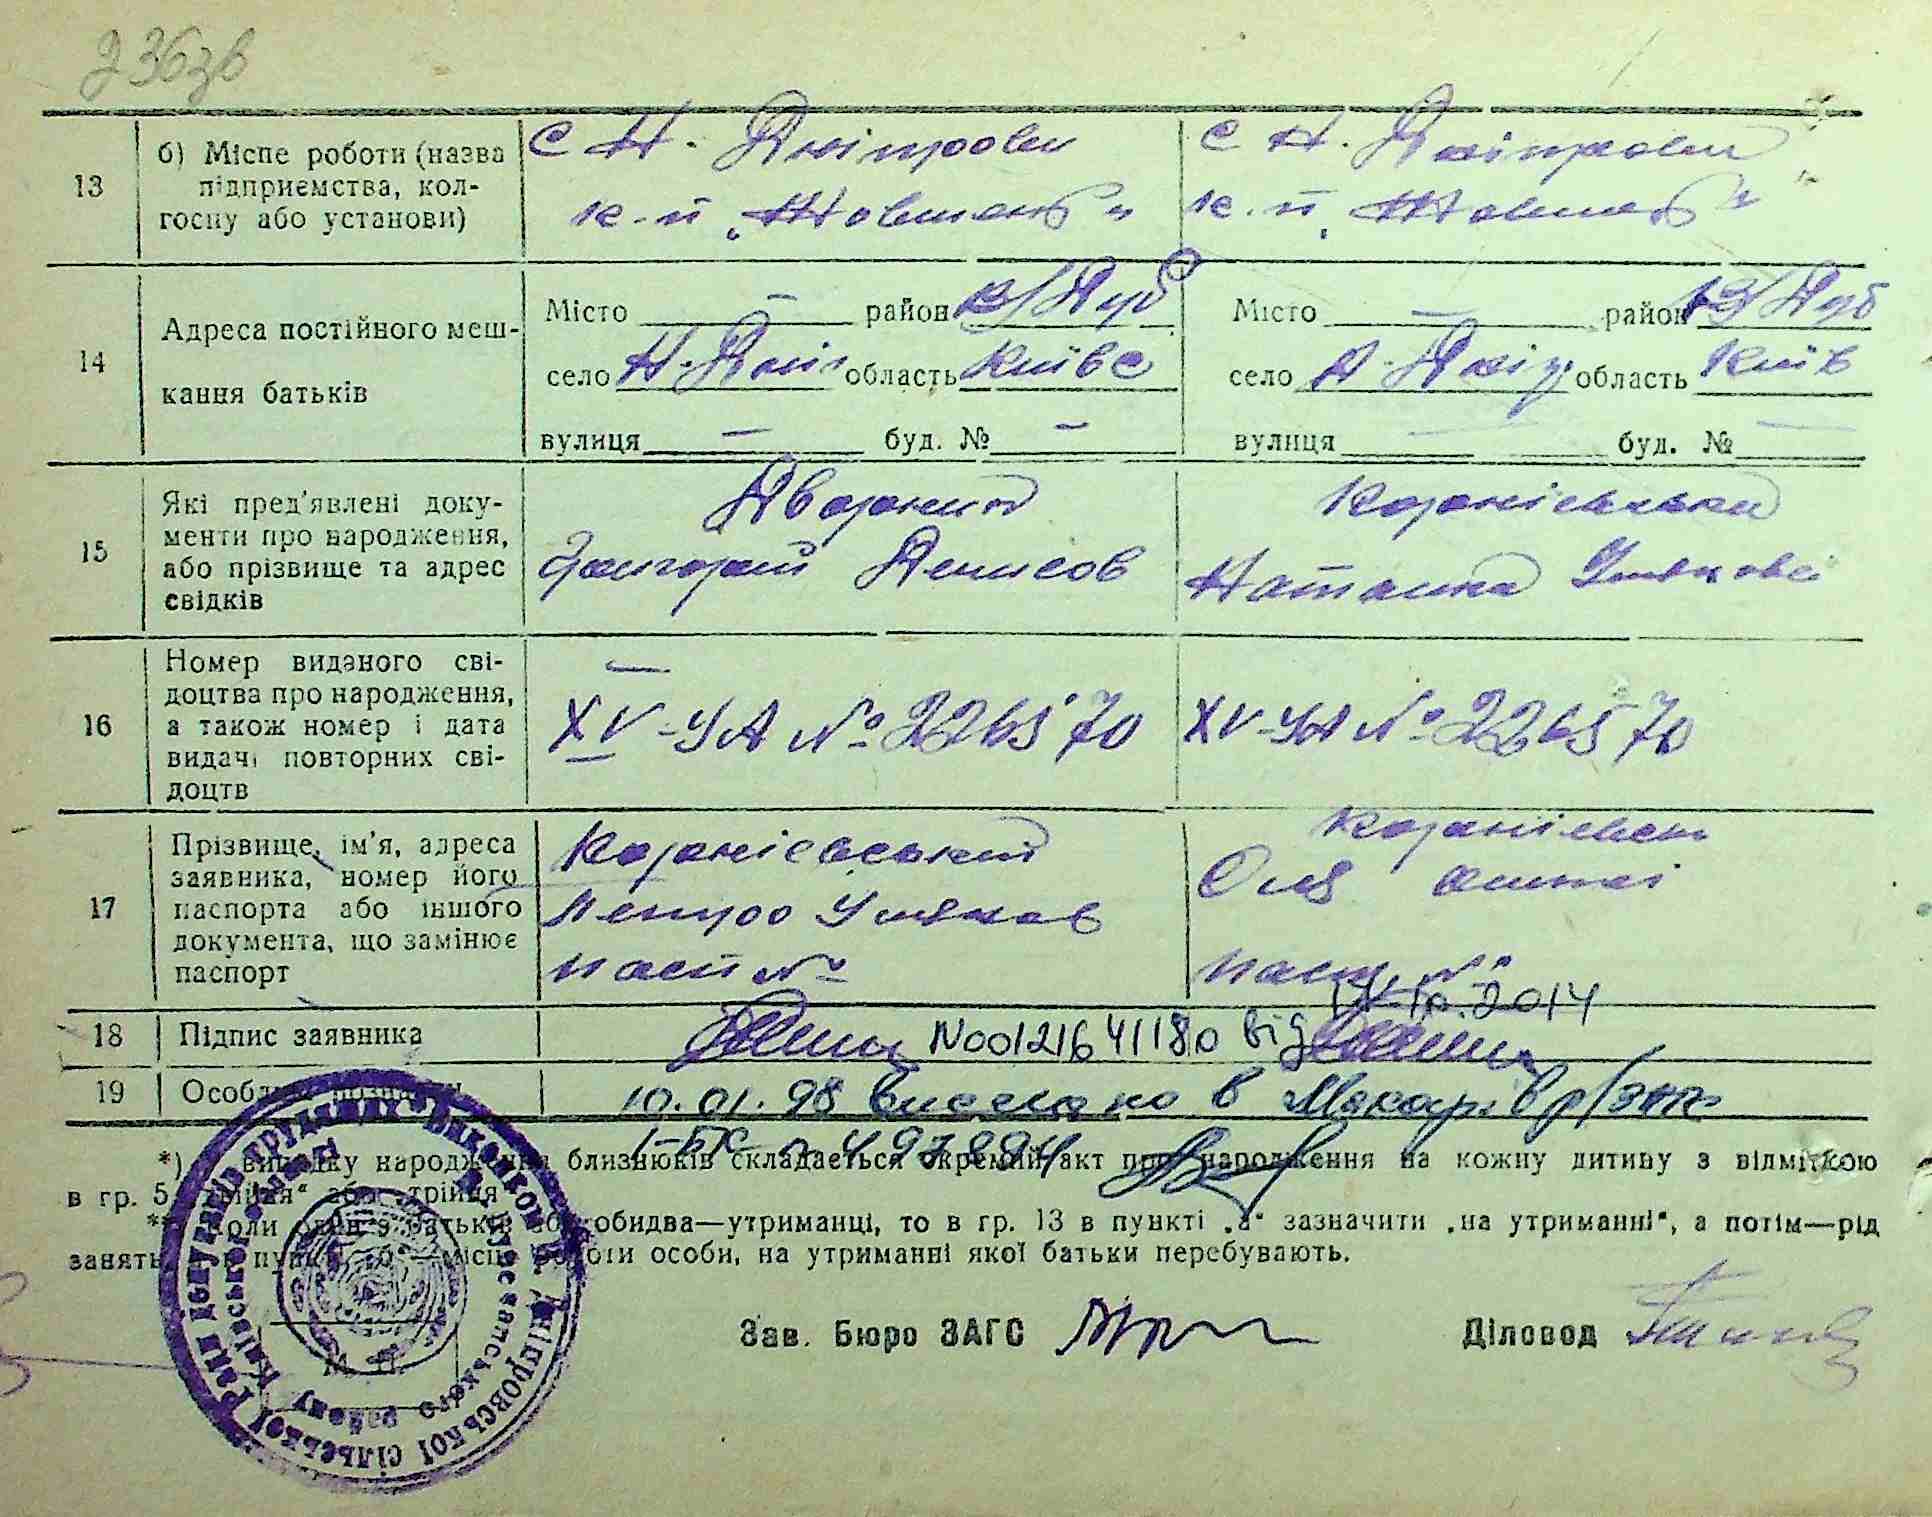 236зв
13
б) Місце роботи (назва підприємства, кол-
госпу або установи)
с Н. Дніпровськ
к-п „Жовтень"
с Н. Дніпровськ
к-п „Жовтень"
14
Адреса постійного меш-
кання батьків
Місто — район К/Дуб
село Н-Дніп область Київс
вулиця — буд. № —
Місто — район К/Дуб
село Н-Дніпр область Київ
вулиця — буд. № —
15
Які пред'явлені доку-
менти про народження,
або прізвище та адрес
свідків
Григорий Денисов
Наташка
16
Номер виданого сві-
доцтва про народження,
а також номер і дата
видачі повторних сві-
доцтв
XV-УА № 226570
XV-УА № 226570
17
Прізвище, ім'я, адреса
заявника, номер його
паспорта або іншого
документа, що замінює
паспорт
Корнієвський
Петро
пасп №
Корнієвськ
Оля
пасп. №
18
Підпис заявника
N00121641180 від 14.10.2014
19
Особливі розмітки
10.01.98 выслано в Макарів р/загс
І-БК № 497894
*) у випадку народження близнюків складається окремий акт про народження на кожну дитину з відміткою
в гр. 5 „двійня" або „трійня"
**) Коли один з батьків або обидва—утриманці, то в гр. 13 в пункті „а" зазначити „на утриманні", а потім—рід
занять, в пункті „б" місце роботи особи, на утриманні якої батьки перебувають.
М. П.
Зав. Бюро ЗАГС
Діловод